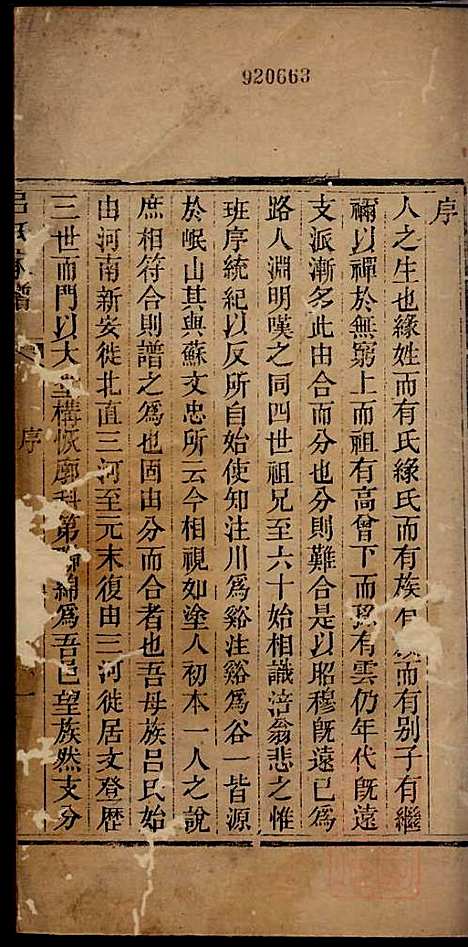 920663
序
人之生也緣姓而有氏緣氏而有族有族而有別子有繼
禰以禪於無窮上而祖有高曾下而孫有雲仍年代旣遠
支派漸多此由合而分也分則難合是以昭穆旣遠已爲
路人淵明嘆之同四世祖兄至六十始相識涪翁悲之惟
班序統紀以反所自始使知注川爲谿注谿爲谷一皆源
於岷山其與蘇文忠所云今相視如塗人初本一人之說
庶相符合則譜之爲也固由分而合者也吾母族呂氏始
由河南新安徙北直三河至元末復由三河徙居文登歷
三世而門以大堂構恢廓科第綿爲吾邑望族然支分
呂氏家譜
序
一